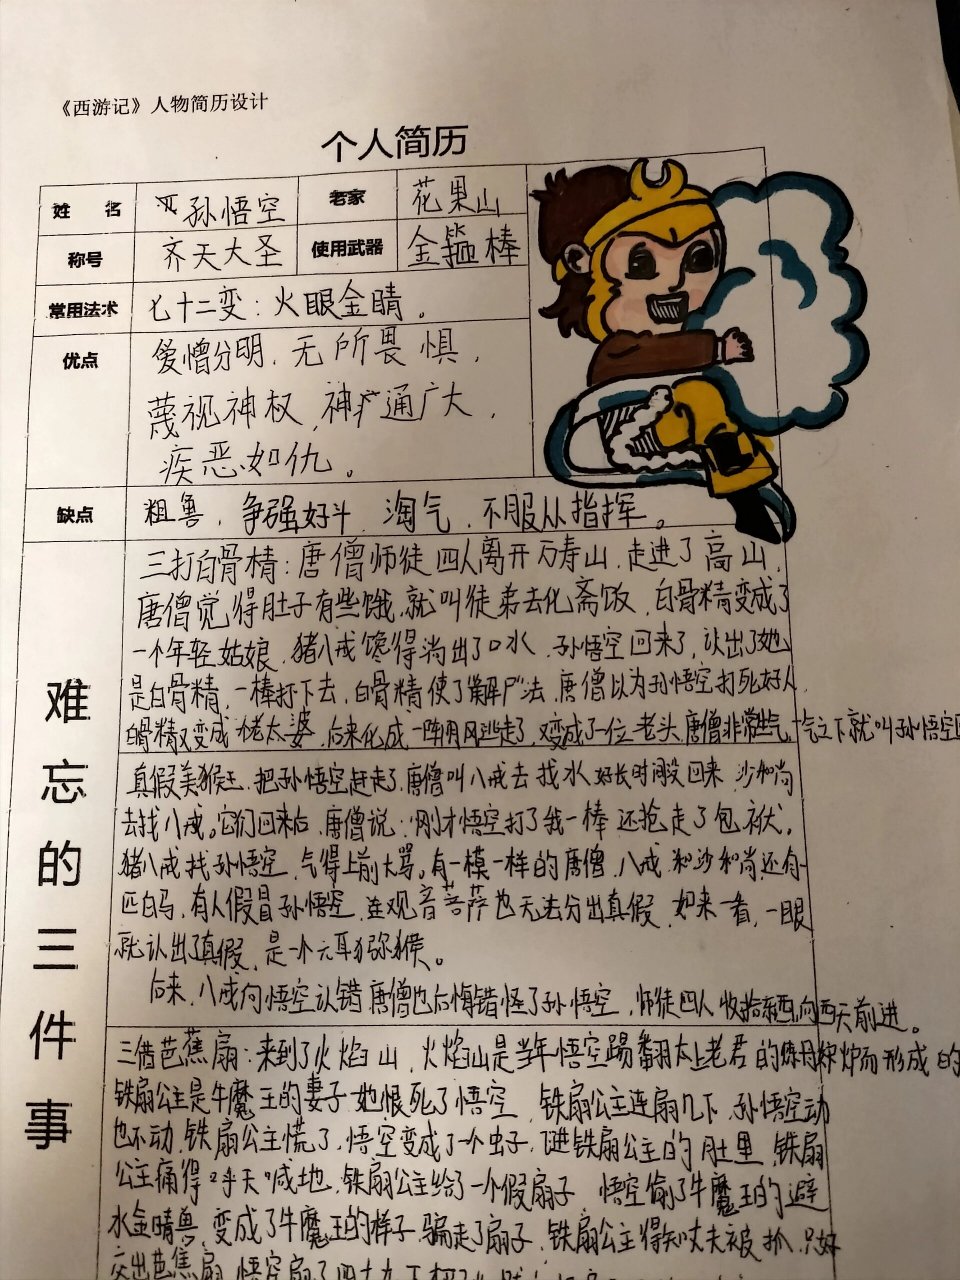 《西游记》人物简历设计
个人简历
姓 名 孙悟空 老家 花果山
称号 齐天大圣 使用武器 金箍棒
常用法术 七十二变：火眼金睛。
优点 爱憎分明，无所畏惧，
蔑视神权，神通广大，
疾恶如仇。
缺点 粗鲁，争强好斗，淘气，不服从指挥。
难忘的三件事
三打白骨精：唐僧师徒四人离开万寿山，走进了高山，
唐僧觉得肚子有些饿，就叫徒弟去化斋饭，白骨精变成了
一个年轻姑娘，猪八戒馋得淌出了口水，孙悟空回来了，认出了她
是白骨精，一棒打下去，白骨精使了解尸法，唐僧以为孙悟空打死好人，
白骨精又变成老太婆，后来化成一阵阴风逃走了，又变成了一位老头，唐僧非常生气，气之下就叫孙悟空回
真假美猴王，把孙悟空赶走了，唐僧叫八戒去找水，好长时间没回来，沙和尚
去找八戒。它们回来后，唐僧说：刚才悟空打了我一棒，还抢走了包袱。
猪八戒找孙悟空，气得上前大骂。有一模一样的唐僧，八戒和沙和尚，还有一
匹白马，有人假冒孙悟空，连观音菩萨也无法分出真假，如来一看，一眼
就认出了真假，是一个六耳猕猴。
后来，八戒向悟空认错，唐僧也后悔错怪了孙悟空，师徒四人收拾东西，向西天前进。
三借芭蕉扇：来到了火焰山，火焰山是当年悟空踢翻太上老君的炼丹炉而形成的
铁扇公主是牛魔王的妻子，她恨死了悟空，铁扇公主连扇几下，孙悟空动
也不动，铁扇公主慌了，悟空变成了一个虫子，飞进铁扇公主的肚里，铁扇
公主痛得呼天喊地，铁扇公主给了一个假扇子，悟空偷了牛魔王的避
水金睛兽，变成了牛魔王的样子，骗走了扇子，铁扇公主得知丈夫被抓，只好
交出芭蕉扇，悟空扇了四十九下